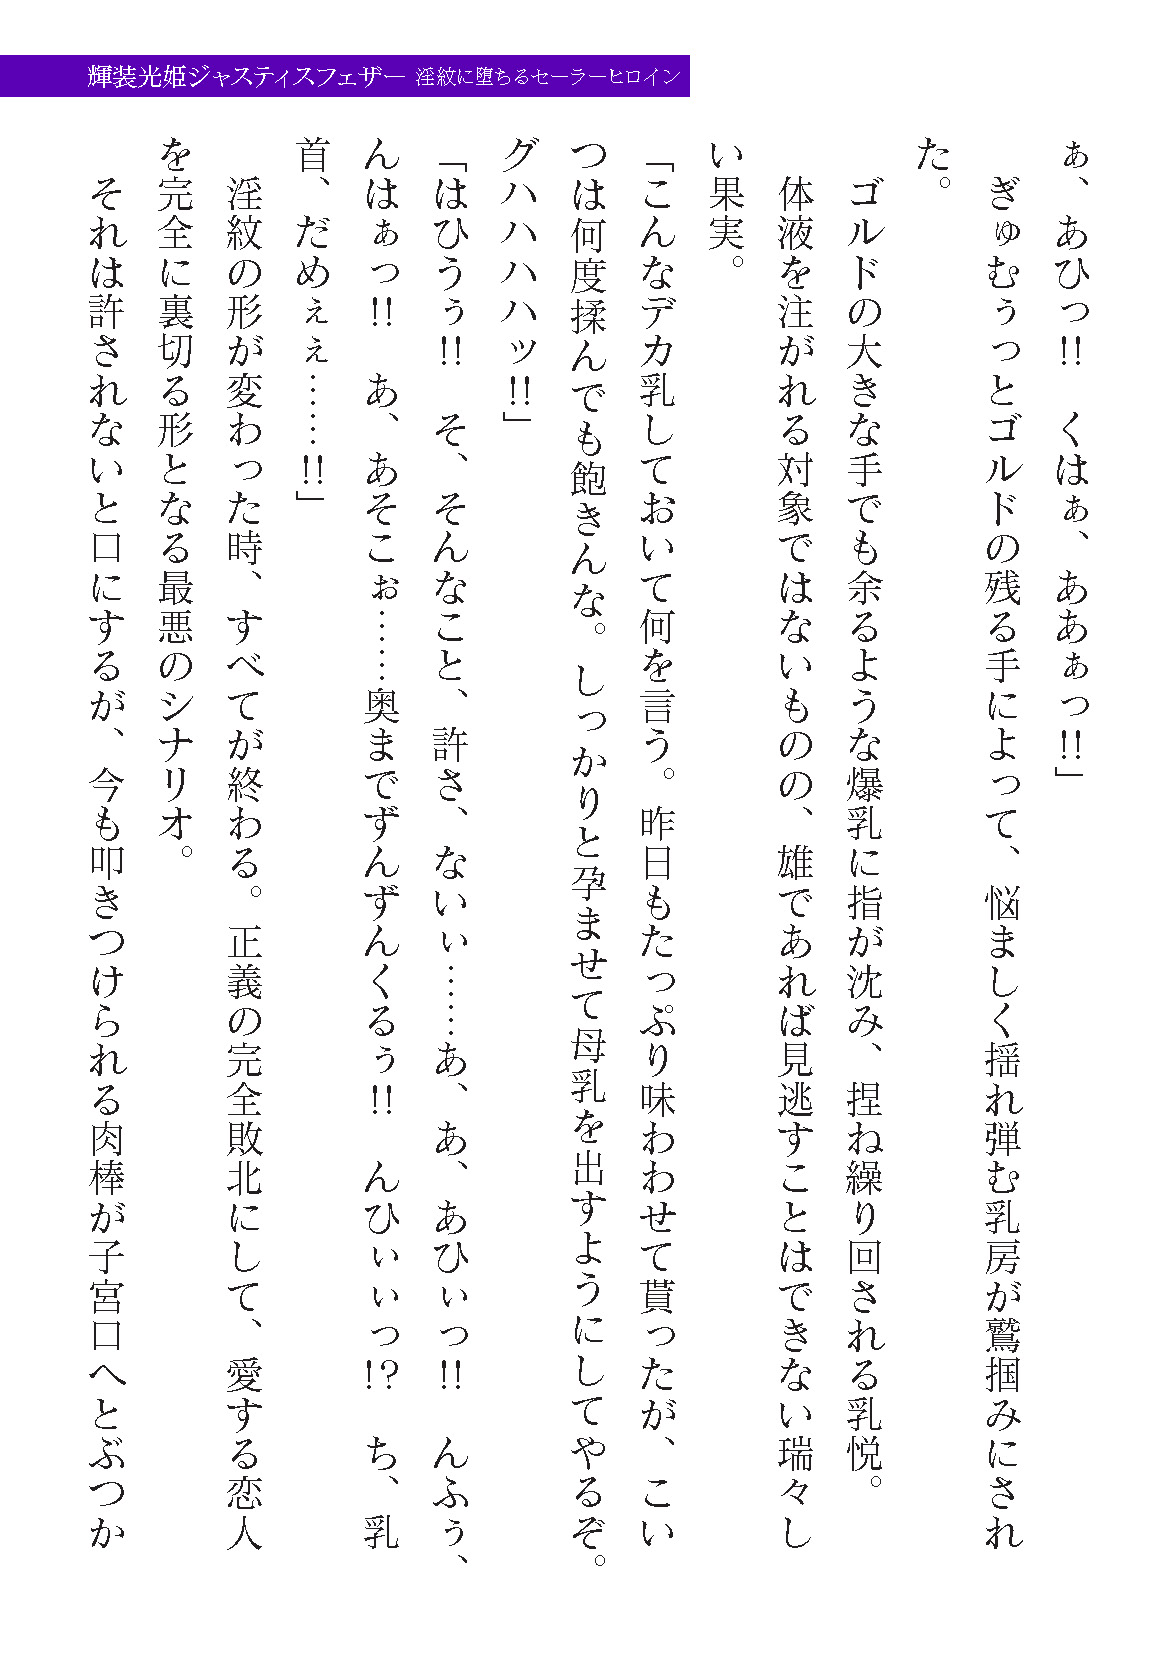 輝装光姫ジャスティスフェザー 淫紋に堕ちるセーラーヒロイン
ぁ、あひっ!! くはぁ、ああぁっ!!」
ぎゅむぅっとゴルドの残る手によって、悩ましく揺れ弾む乳房が鷲掴みにされ
た。
ゴルドの大きな手でも余るような爆乳に指が沈み、捏ね繰り回される乳悦。
体液を注がれる対象ではないものの、雄であれば見逃すことはできない瑞々し
い果実。
「こんなデカ乳しておいて何を言う。昨日もたっぷり味わわせて貰ったが、こい
つは何度揉んでも飽きんな。しっかりと孕ませて母乳を出すようにしてやるぞ。
グハハハハッ!!」
「はひうぅ!! そ、そんなこと、許さ、ないぃ……あ、あ、あひぃっ!! んふぅ、
んはぁっ!! あ、あそこぉ……奥までずんずんくるぅ!! んひぃぃっ!? ち、乳
首、だめぇぇ……!!」
淫紋の形が変わった時、すべてが終わる。正義の完全敗北にして、愛する恋人
を完全に裏切る形となる最悪のシナリオ。
それは許されないと口にするが、今も叩きつけられる肉棒が子宮口へとぶつか